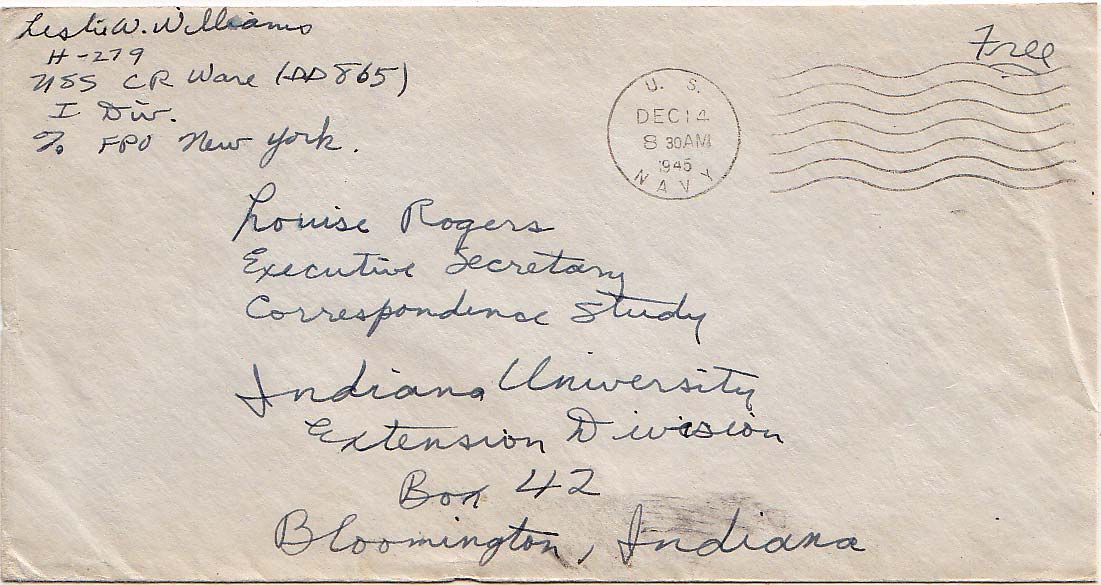 Leslie W. Williams
H-279
USS CR Ware (DD 865)
I Div.
% FPO New York.
Free
U. S.
DEC 14
8 30AM
1945
NAVY
Louise Rogers
Executive Secretary
Correspondence Study
Indiana University
Extension Division
Box 42
Bloomington, Indiana